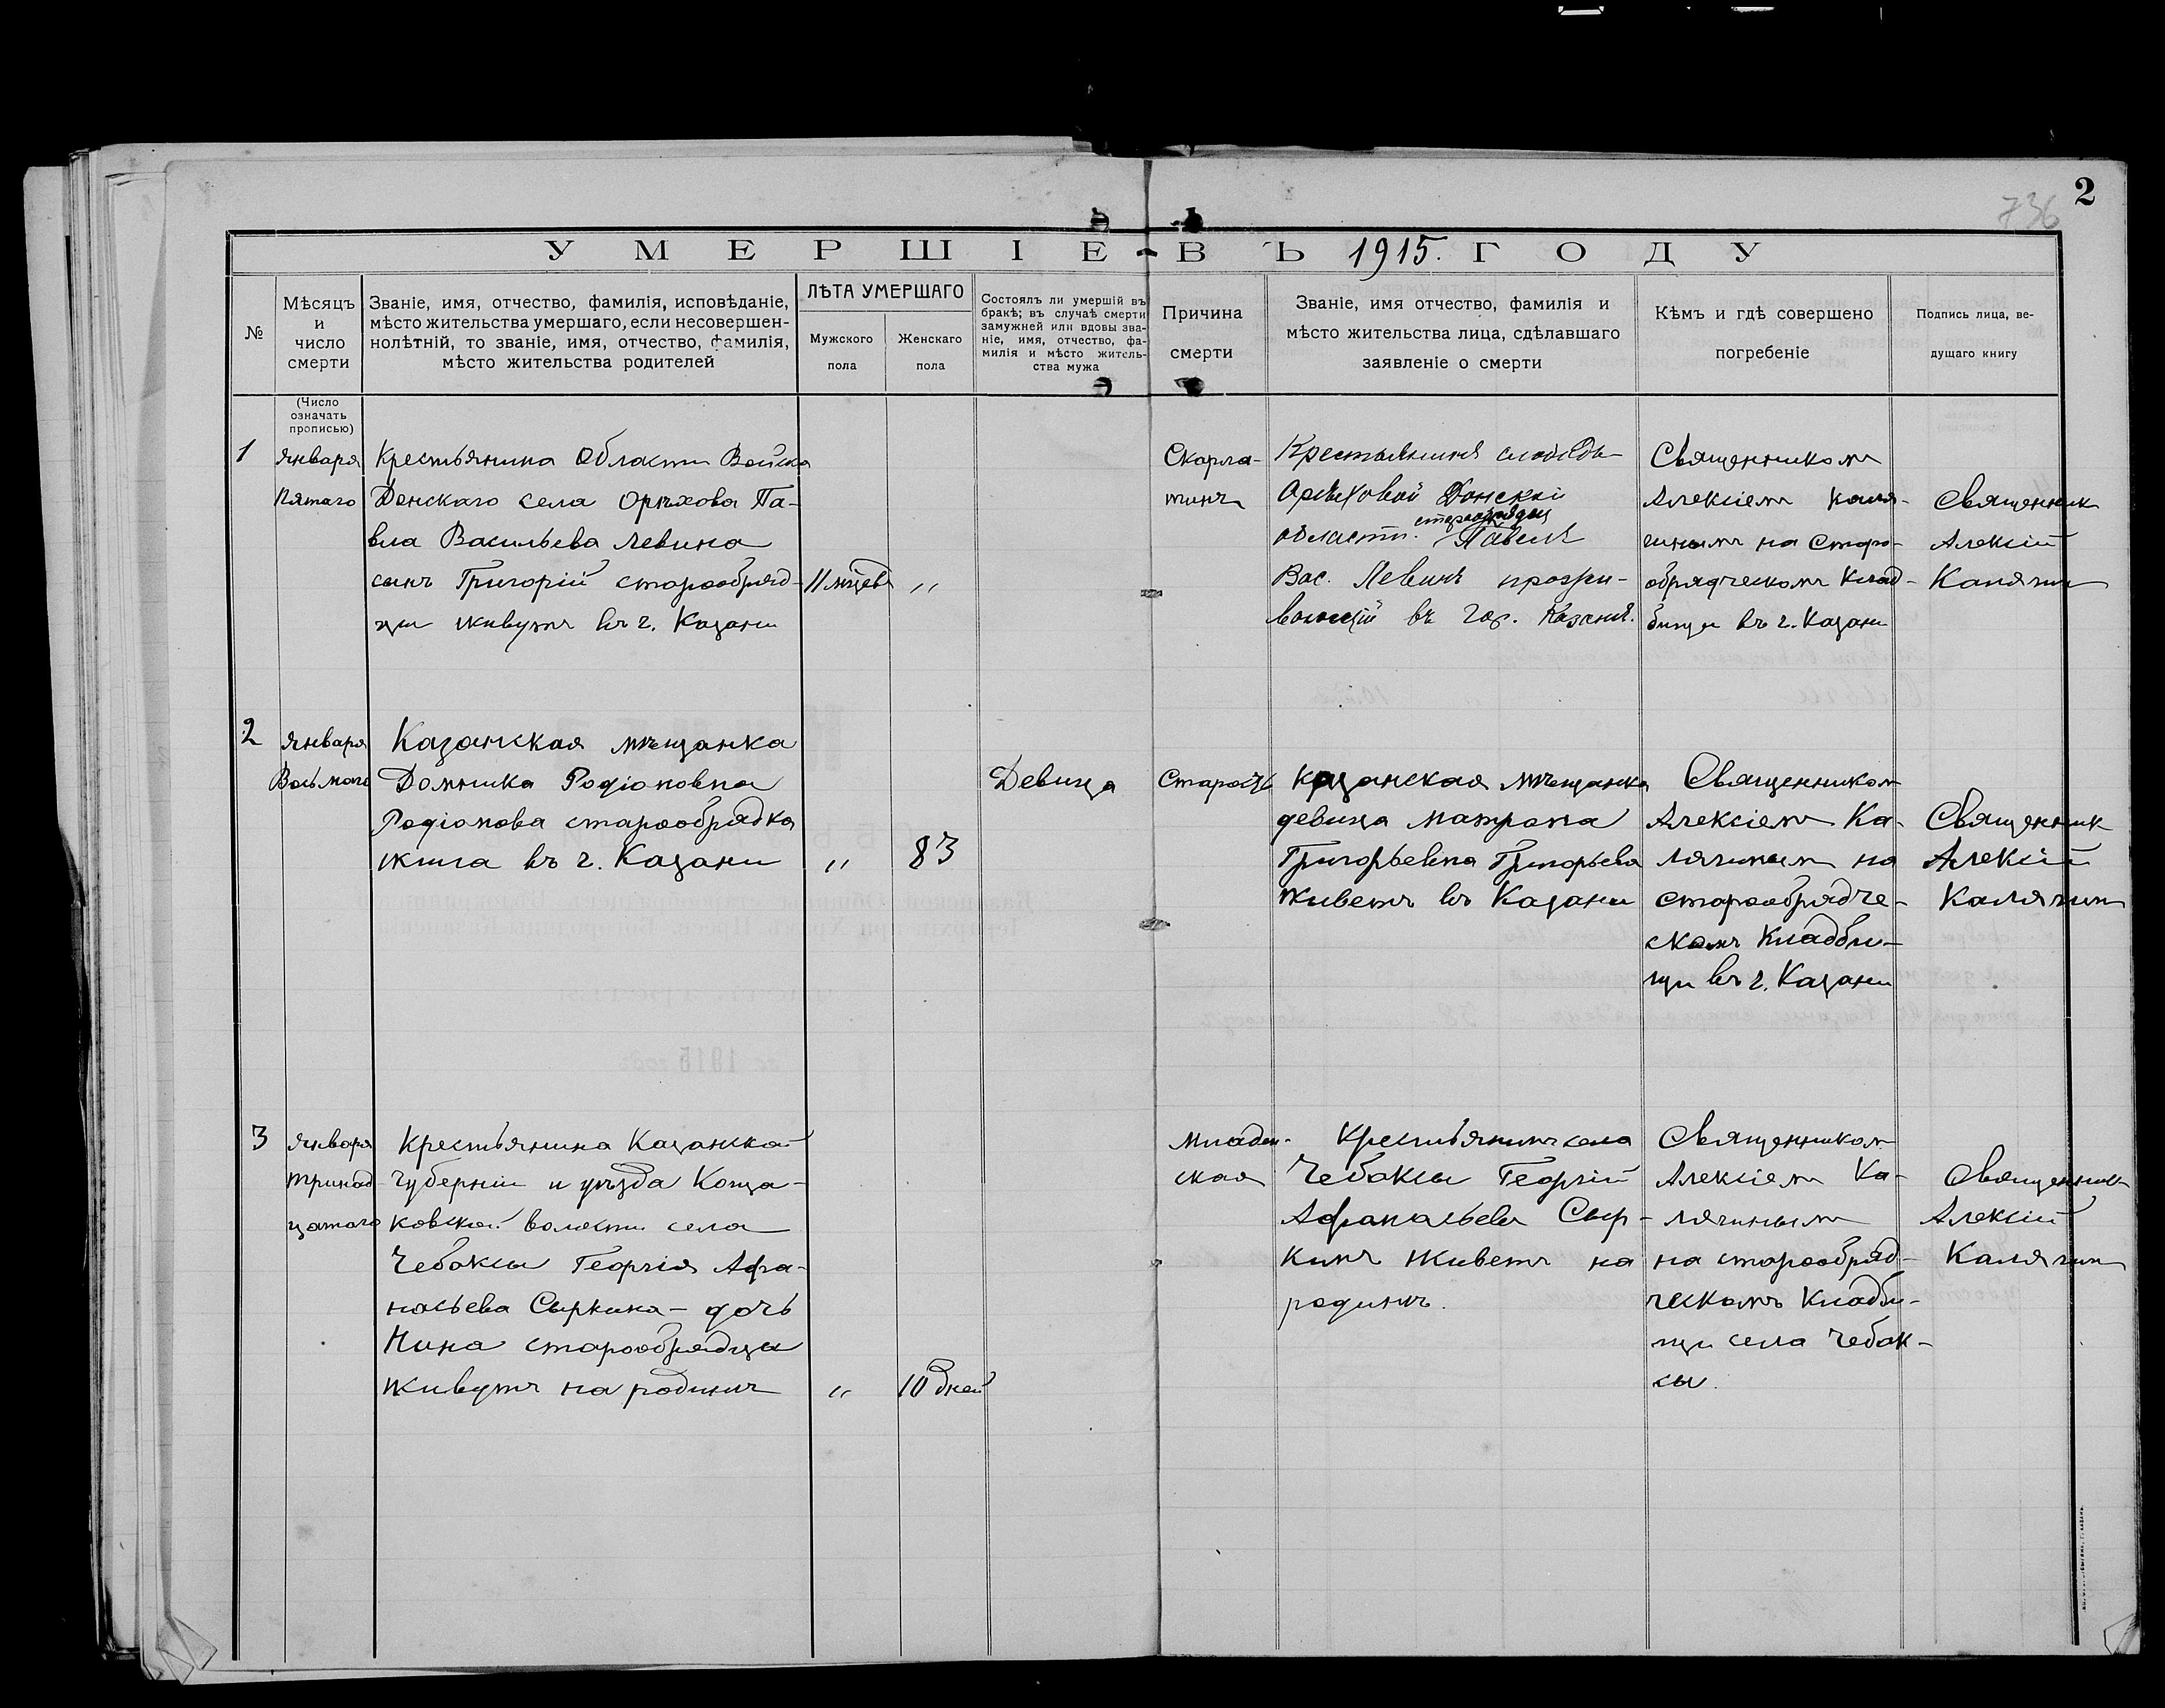 2
736
УМЕРШІЕ ВЪ 1915. ГОДУ
№
Мѣсяцъ
и
число
смерти
Званіе, имя, отчество, фамилія, исповѣданіе,
мѣсто жительства умершаго, если несовершен-
нолѣтній, то званіе, имя, отчество, фамилія,
мѣсто жительства родителей
ЛѢТА УМЕРШАГО
Мужского
пола
Женскаго
пола
Состоялъ ли умершій въ
бракѣ; въ случаѣ смерти
замужней или вдовы зва-
ніе, имя, отчество, фа-
милія и мѣсто житель-
ства мужа
Причина
смерти
Званіе, имя отчество, фамилія и
мѣсто жительства лица, сдѣлавшаго
заявленіе о смерти
Кѣмъ и гдѣ совершено
погребеніе
Подпись лица, ве-
дущаго книгу
(Число
означать
прописью)
1
Января
Пятаго
Крестьянина Области Войска
Донскаго села Орѣхова Па-
вла Васильева Левина
сынъ Григорій старообряд-
цы живутъ въ г. Казани
11 мцевъ
"
Скарла-
тинъ
Крестьянинъ слободы
Орѣховой Донской
старообрядец
области. Павелъ
Вас. Левинъ прожи-
вающій въ гор. Казани.
Священником
Алексіем Каля-
гинымъ на Старо-
обрядческомъ Клад-
бищи въ г. Казани
Священник
Алексій
Калягин
2
Января
Восьмого
Казанская мѣщанка
Домника Родіоновна
Родіонова старообрядка
жила въ г. Казани
"
83
Девица
Старость
Казанская мѣщанка
девица Матрона
Григорьевна Григорьева
Живетъ въ Казани
Священником
Алексіем Ка-
лягиным на
старообрядче-
скомъ Кладби-
щи въ г. Казани
Священник
Алексій
Калягин
3
Января
тринад-
цатаго
Крестьянина Казанской
Губерніи и уѣзда Коща-
ковской волости села
Чебаксы Георгія Афа-
насьева Сыркина - дочь
Нина старообрядцы
Живутъ на родинѣ
"
10 дней
Младен-
ская
Крестьянинъ села
Чебаксы Георгій
Афанасьевъ Сыр-
кинъ Живетъ на
родинѣ.
Священником
Алексіем Ка-
лягиным
на старообряд-
ческомъ Кладби-
щи села Чебак-
сы.
Священник
Алексій
Калягин